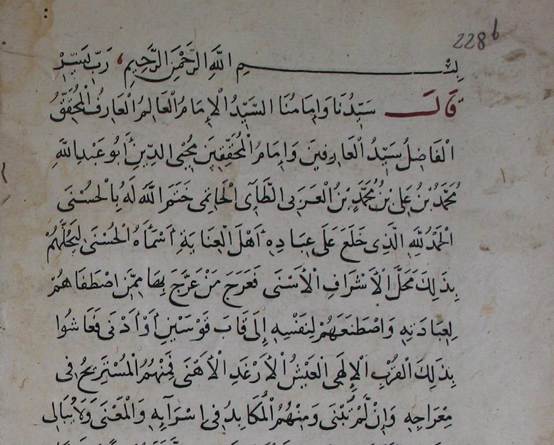 228b
بسم الله الرحمن الرحيم رب يسر
قال سيدنا وإمامنا السيد الإمام العالم العارف المحقق
الفاضل سيد العارفين وإمام المحققين محيي الدين أبو عبد الله
محمد بن علي بن محمد بن العربي الطائي الحاتمي ختم الله له بالحسنى
الحمد لله الذي خلع على عباده أهل العناية أسماءه الحسنى ليحلهم
بذلك محل الأشراف الأسنى فعرج من عرج بها ممن اصطفاهم
لعبادته واصطنعهم لنفسه إلى قاب قوسين أو أدنى فعاشوا
بذلك القرب الإلهي العيش الأرغد الأهنى فمنهم المستريح في
معراجه وإن لم يتبنى ومنهم المكابد في إسرائه والمعنى ولا يبالى